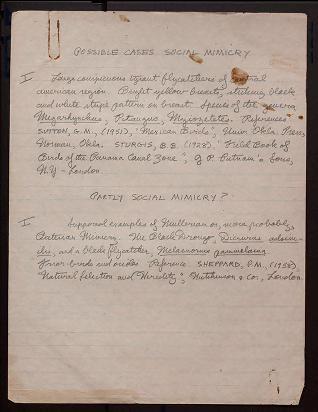 POSSIBLE CASES SOCIAL MIMICRY
I Large conspicuous tyrant flycatchers of central
american region. Bright yellow breasts, striking black
and white stripe pattern on Species of the genera
Megarhynchus, Pitangus, Myiozetetes. References
SUTTON, G.M., (1951), "Mexican Birds", Univ. Okla. Press,
Norman, Okla. STURGIS, B.B. (1928). "Field Book of
Birds of the Panama Canal Zone", G.P. Putnam's Sons,
N.Y. - London.
PARTLY SOCIAL MIMICRY?
I Supposed examples of Mullerian or, more probably,
Batesian Mimicry. The Black Drongo, Dicrurus adsim-
ilis, and a black flycatcher, Melaenornis pammelaina
Reference. SHEPPARD, P.M., (1958),
"Natural Selection and Heredity", Hutchinson & Co., London.